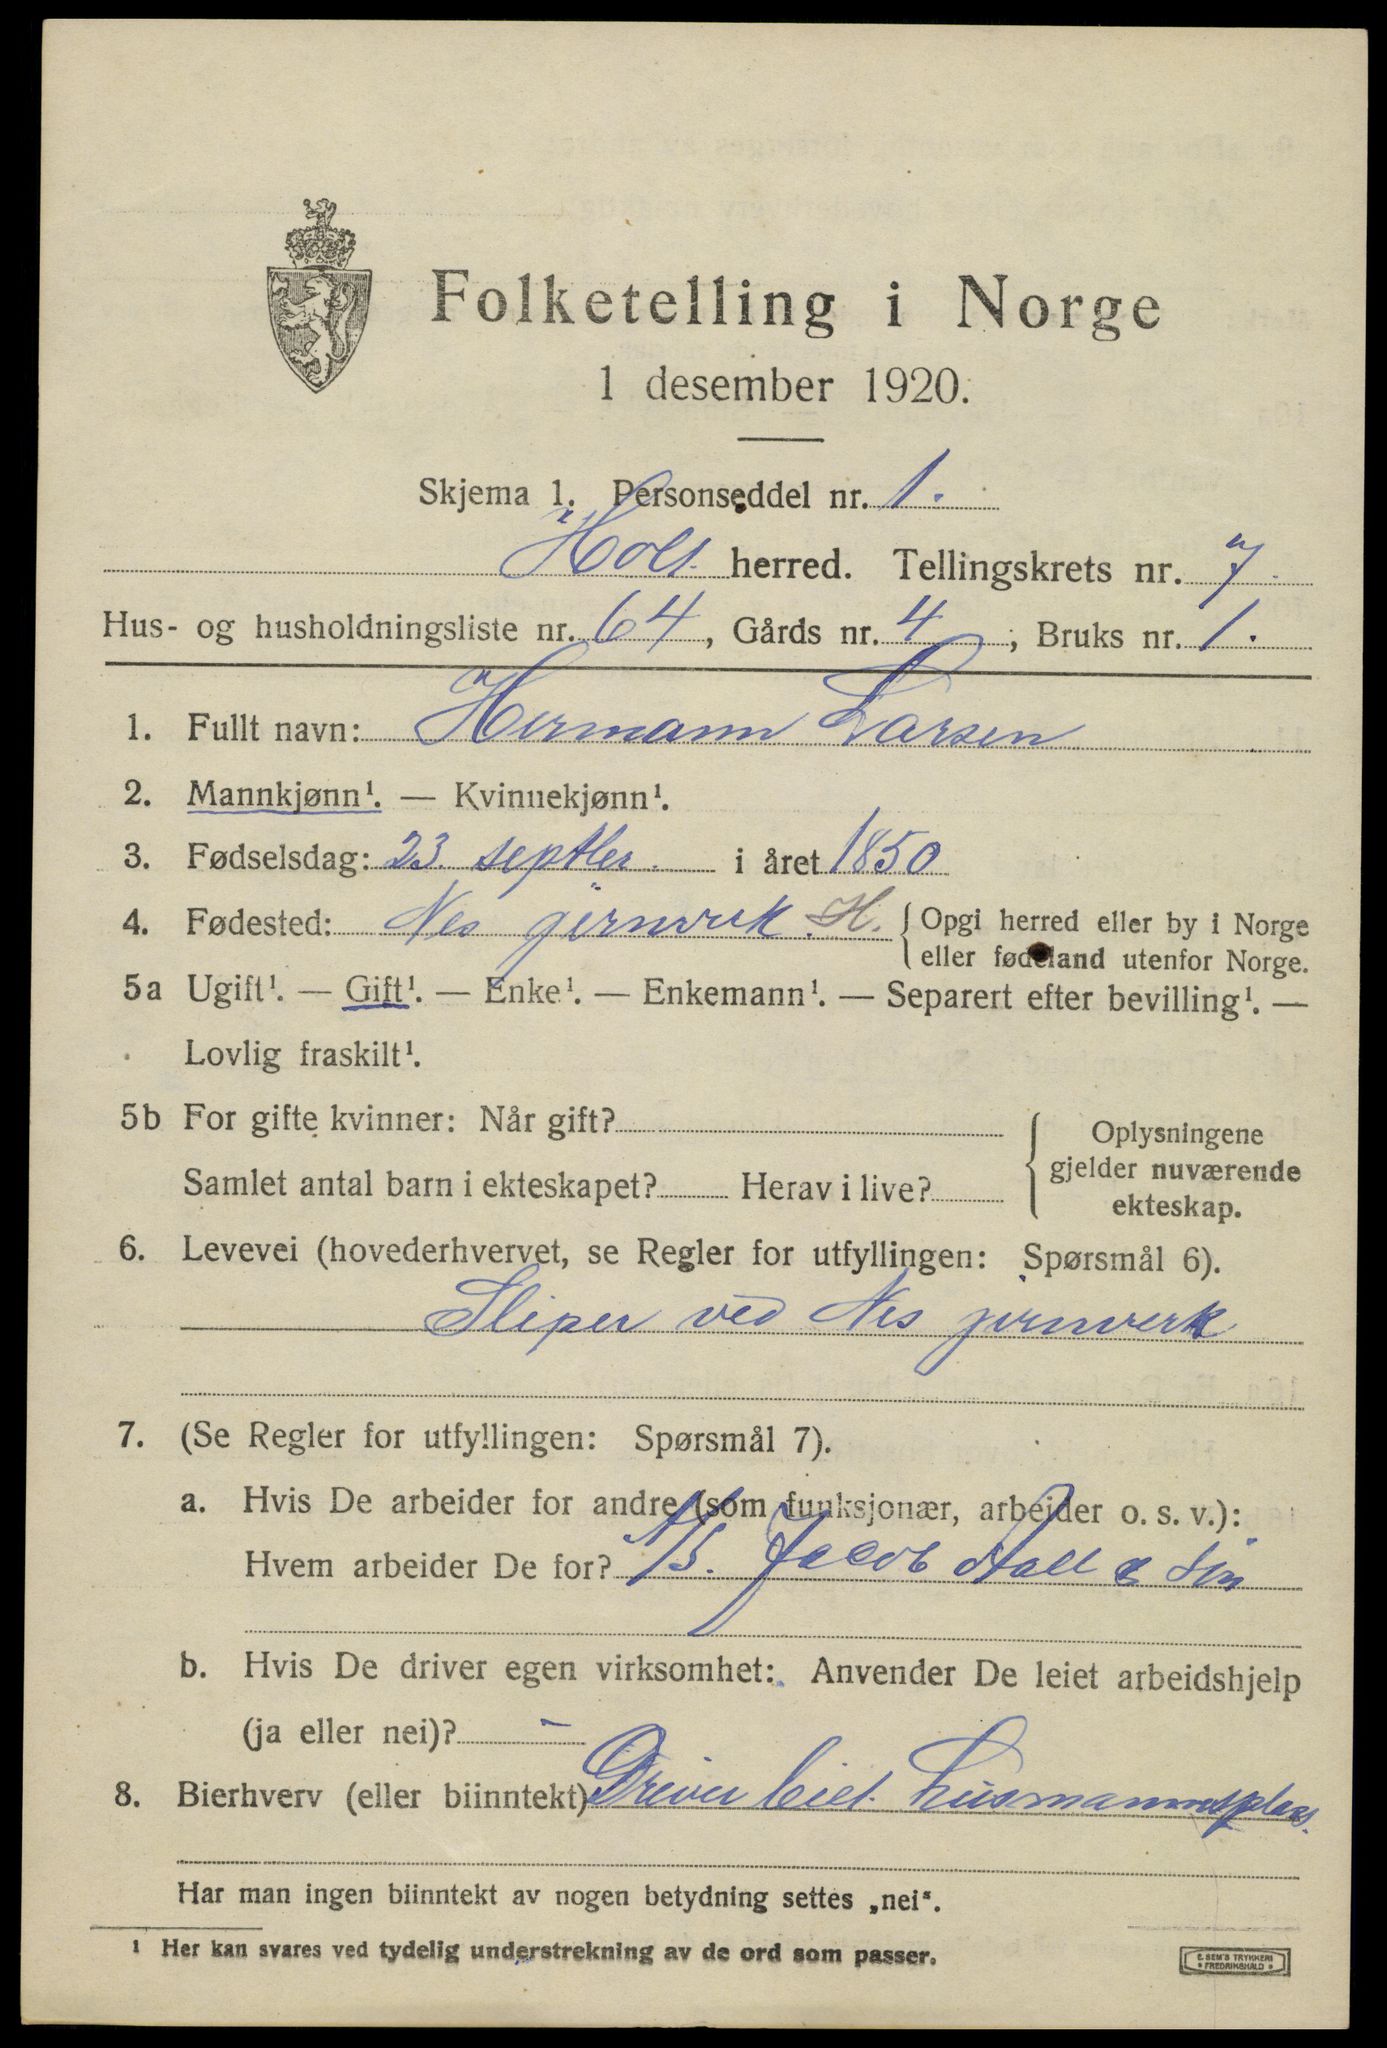 Folketelling i Norge
1 desember 1920.
Skjema 1. Personseddel nr. 1.
Holt herred. Tellingskrets nr. 7.
Hus- og husholdningsliste nr. 64, Gårds nr. 4, Bruks nr. 1.
1. Fullt navn: Hermann Larsen
2. Mannkjønn¹. — Kvinnekjønn¹.
3. Fødselsdag: 23. septber. i året 1850
4. Fødested: Nes jernverk. H. { Opgi herred eller by i Norge
eller fødeland utenfor Norge.
5a Ugift¹. — Gift¹. — Enke¹. — Enkemann¹. — Separert efter bevilling¹. —
Lovlig fraskilt¹.
5b For gifte kvinner: Når gift?
Samlet antal barn i ekteskapet? Herav i live?
{ Oplysningene
gjelder nuværende
ekteskap.
6. Levevei (hovederhvervet, se Regler for utfyllingen: Spørsmål 6).
Sliper ved Nes jernverk
7. (Se Regler for utfyllingen: Spørsmål 7).
a. Hvis De arbeider for andre (som funksjonær, arbeider o. s. v.):
Hvem arbeider De for? A/S. Jacob Aall & Søn
b. Hvis De driver egen virksomhet: Anvender De leiet arbeidshjelp
(ja eller nei)? –
8. Bierhverv (eller biinntekt) Driver leiet husmannsplass.
Har man ingen biinntekt av nogen betydning settes „nei".
¹ Her kan svares ved tydelig understrekning av de ord som passer.
E. SEM'S TRYKKERI
* FREDRIKSHALD *